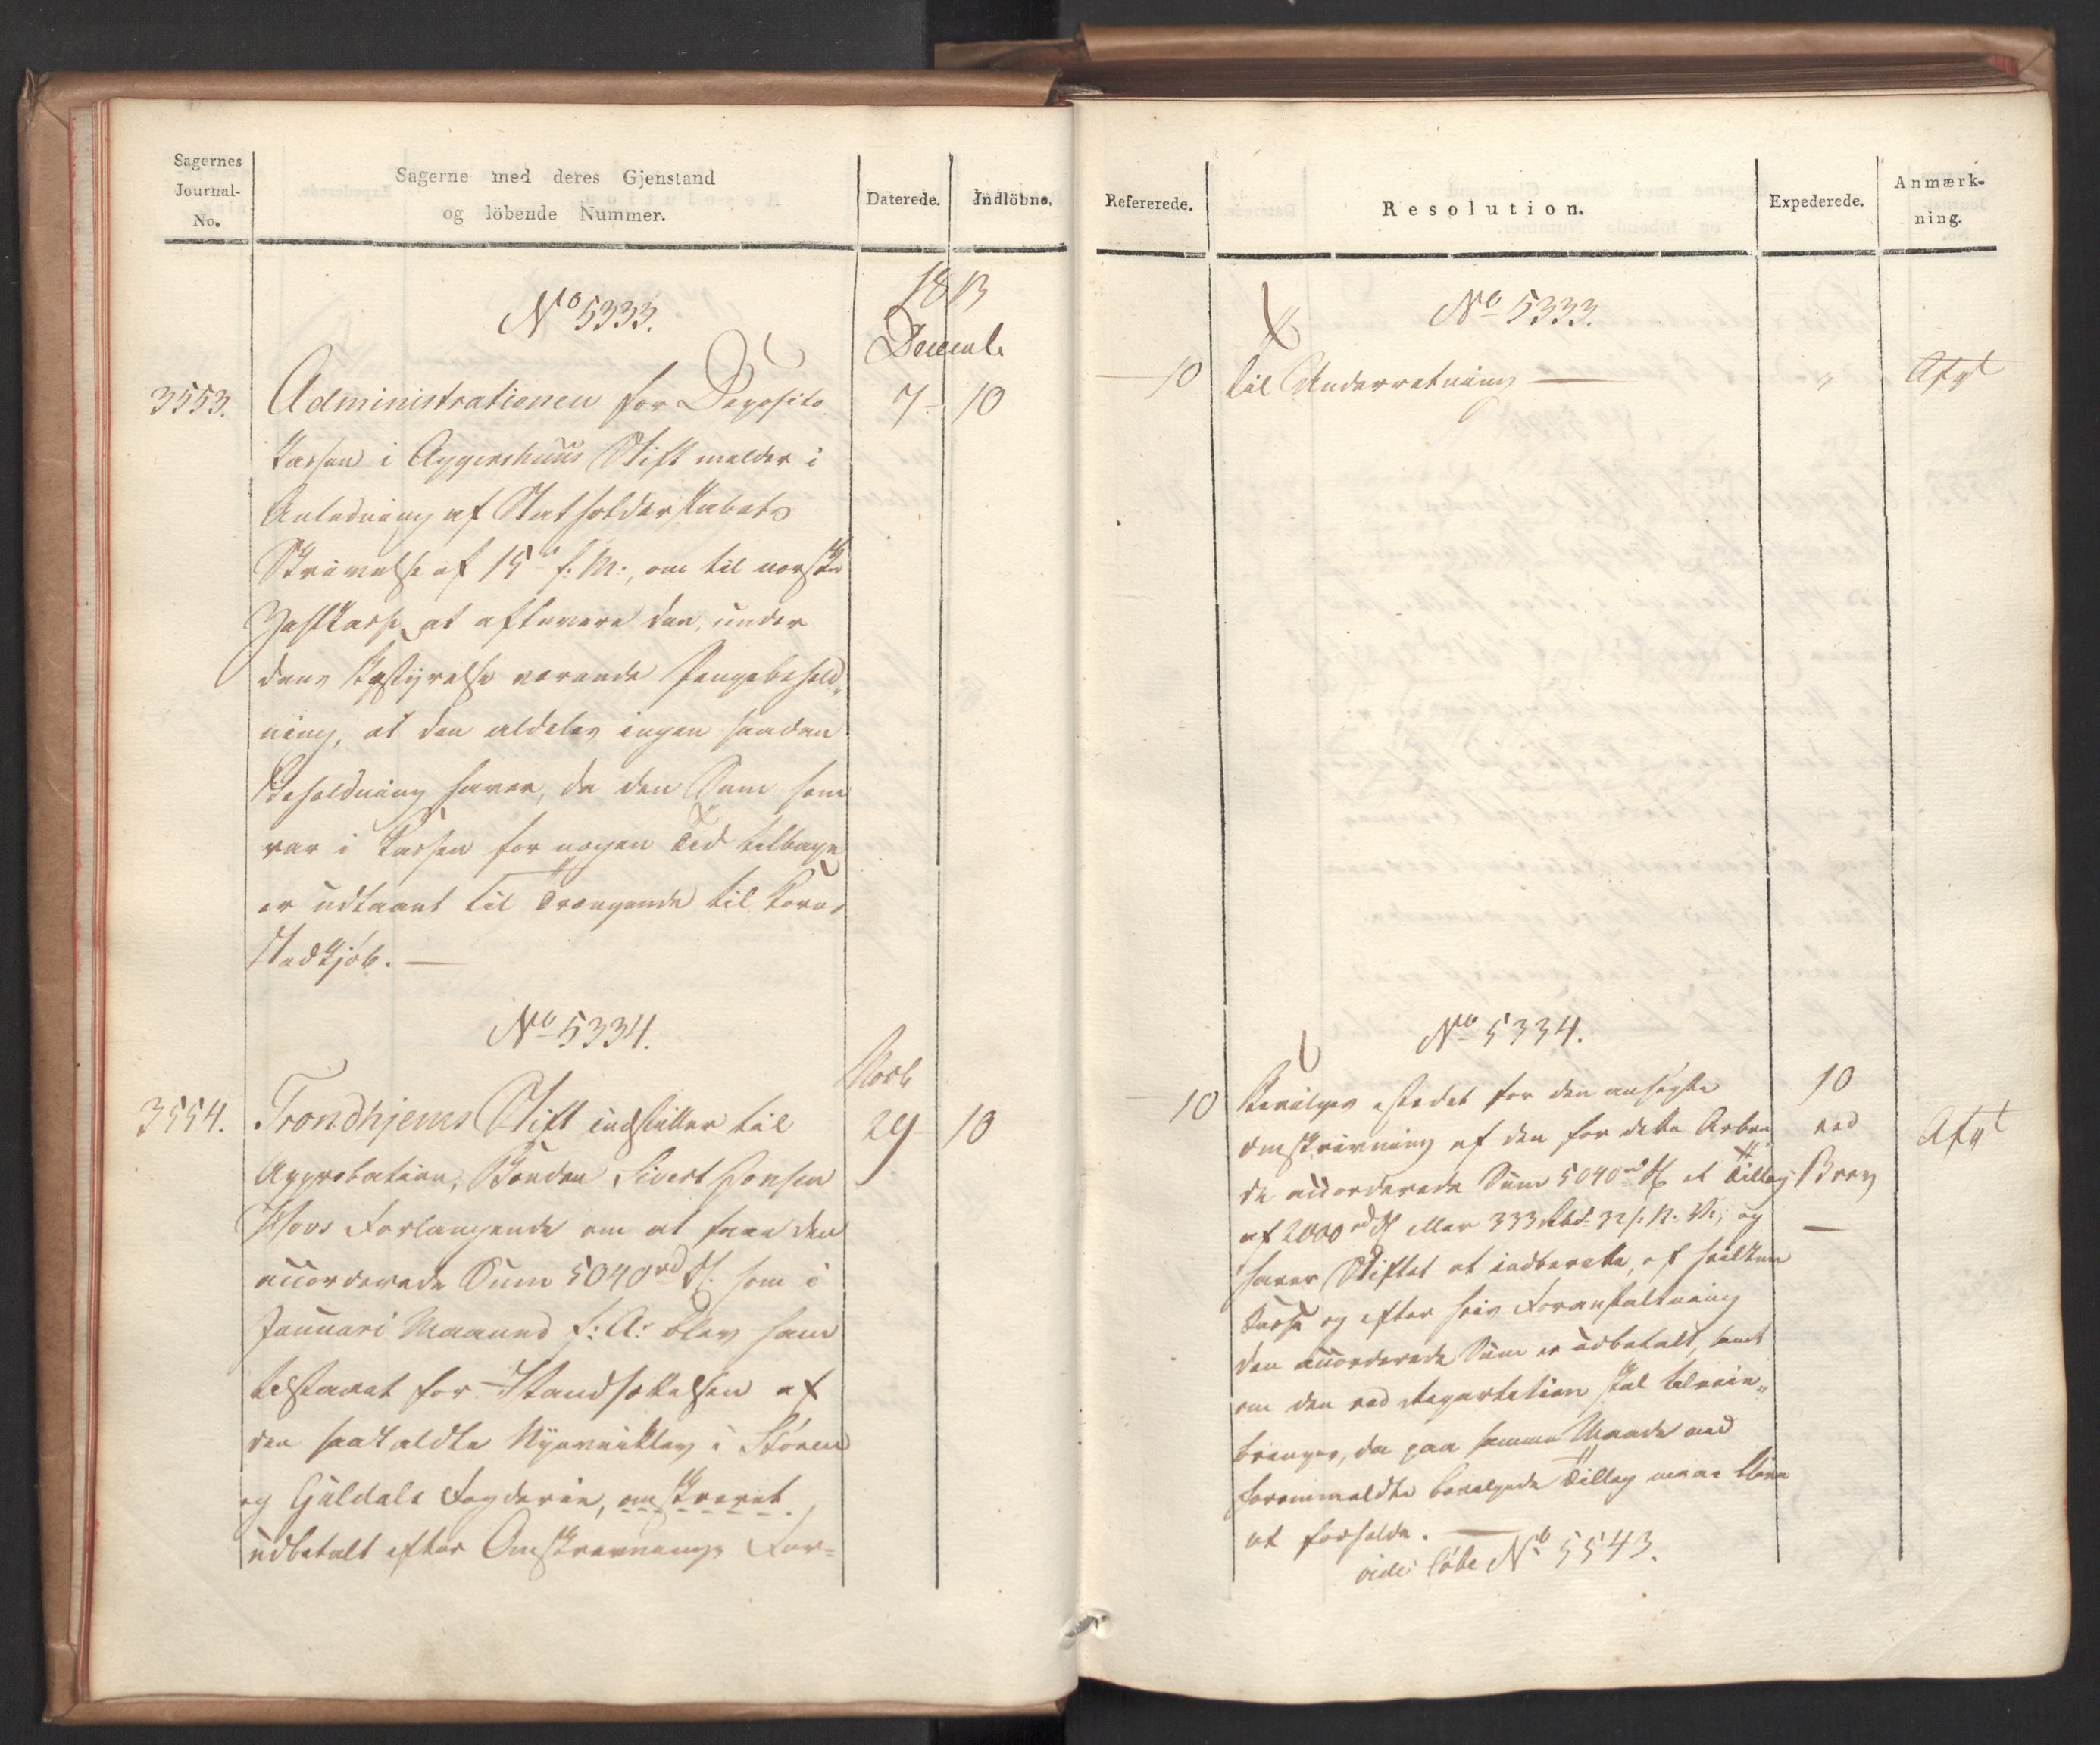 Sagernes
Journal-
No.
Sagerne med deres Gjenstand
og löbende Nummer.
Daterede.
Indlöbne.
1813
Decemb.
No 5333.
3553.
Administrationen for Deposito
7
10
Kassen i Aggershuus Stift melder i
Anledning af Statholderskabets
Skrivelse af 15d f: M:, om til norske
Zahlkasse at aflevere den, under
dens Bestyrelse værende Pengebehold„
ning, at den aldeles ingen saadan
Beholdning haver, da den Sum som
var i Kassen for nogen Tid tilbage
er udlaant til Trængende til Korn,
Indkjøb. —
No 5334.
Novb
3554.
Trondhjems Stift indstiller til
29
10
Approbation, Bonden Sivert Jonsen
Forlangende om at faae den
accorderede Sum 5040rd som i
Januari Maaned f: A: blev ham
tilstaaet for Istandsættelsen af
den saakaldte i Støren
og Guldals Fogderie, omskrevet
udbetalt efter Omskrivnings For=
Refererede.
Resolution.
Expederede.
Anmærk-
ning.
No 5333.
10
til Underretning —
"
Afgt
No 5334.
10
Bevilges istedet for den ansøgte
10
omskrivning af den for dette Arbei
ved
Afgt
de accorderede Sum 5040rd et Tillæg
Brev
af 2000rd eller 333 Rbd 32 s: N: V:, og
—
haver Stiftet at indberette, af hvilken
Kasse og efter hvis Foranstaltning
den accorderede Sum er udbetalt, samt
om den ved Repartition skal tilveie„
bringes, da paa samme Maade med
forommeldte bevilgede Tillæg maae blive
at forholde. —
vide løbe No 5543.